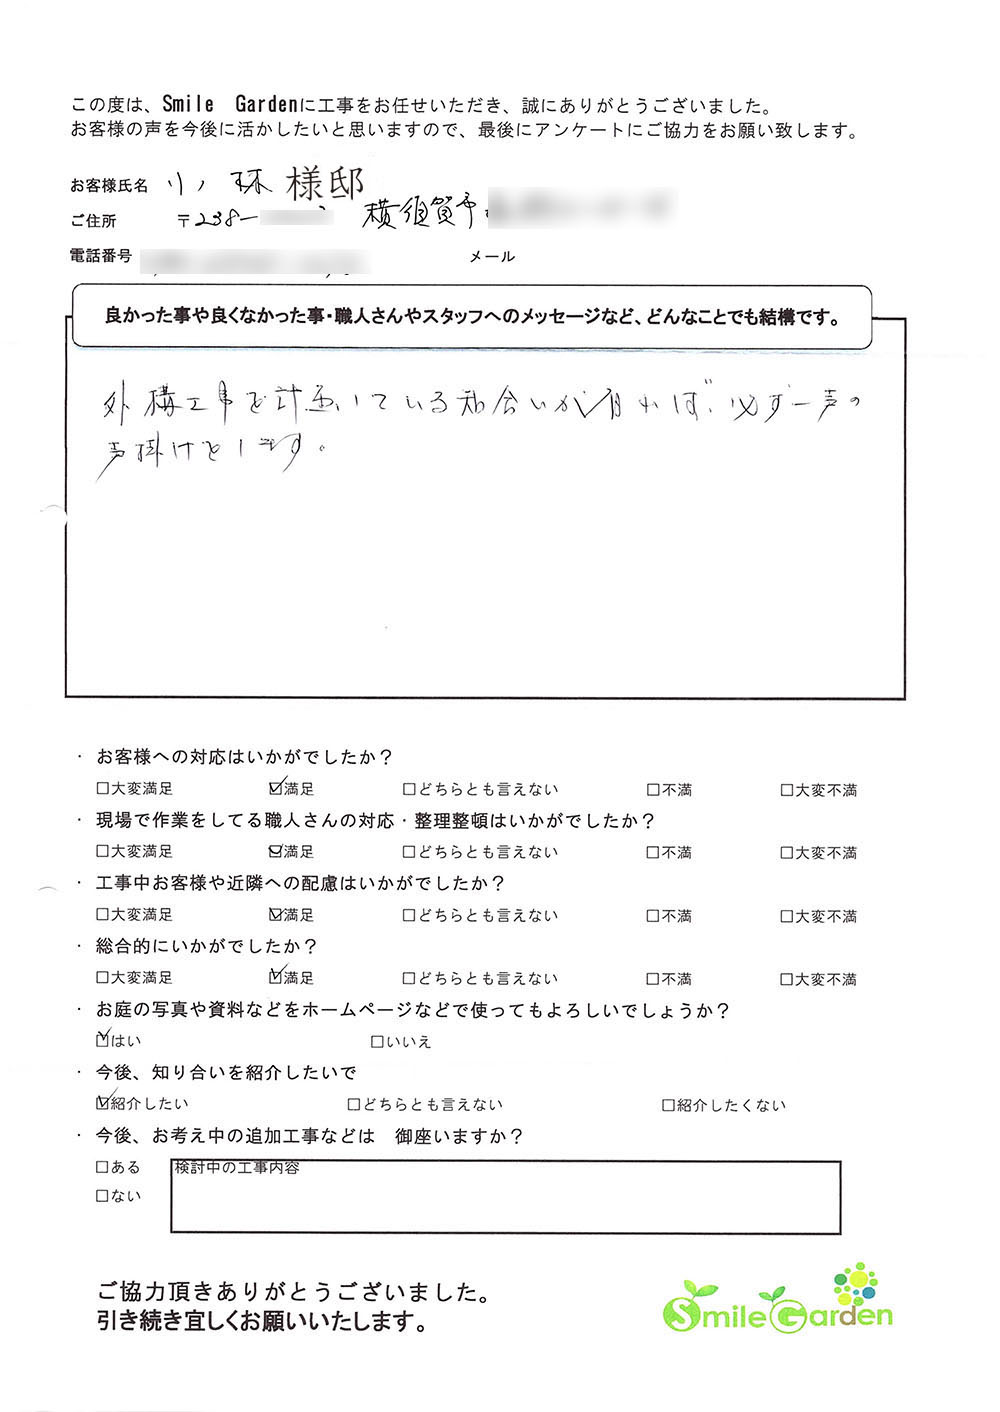 この度は、Smile Gardenに工事をお任せいただき、誠にありがとうございました。
お客様の声を今後に活かしたいと思いますので、最後にアンケートにご協力をお願い致します。
お客様氏名 小林 様邸
ご住所 〒238- 横須賀市
電話番号 メール
良かった事や良くなかった事・職人さんやスタッフへのメッセージなど、どんなことでも結構です。
外構工事を計画している知合いが有れば、必ず一声の
声掛けをします。
・ お客様への対応はいかがでしたか？
□大変満足 ☑満足 □どちらとも言えない □不満 □大変不満
・ 現場で作業をしてる職人さんの対応・整理整頓はいかがでしたか？
□大変満足 ☑満足 □どちらとも言えない □不満 □大変不満
・ 工事中お客様や近隣への配慮はいかがでしたか？
□大変満足 ☑満足 □どちらとも言えない □不満 □大変不満
・ 総合的にいかがでしたか？
□大変満足 ☑満足 □どちらとも言えない □不満 □大変不満
・ お庭の写真や資料などをホームページなどで使ってもよろしいでしょうか？
☑はい □いいえ
・ 今後、知り合いを紹介したいで
☑紹介したい □どちらとも言えない □紹介したくない
・ 今後、お考え中の追加工事などは 御座いますか？
□ある 検討中の工事内容
□ない
ご協力頂きありがとうございました。
引き続き宜しくお願いいたします。
Smile Garden